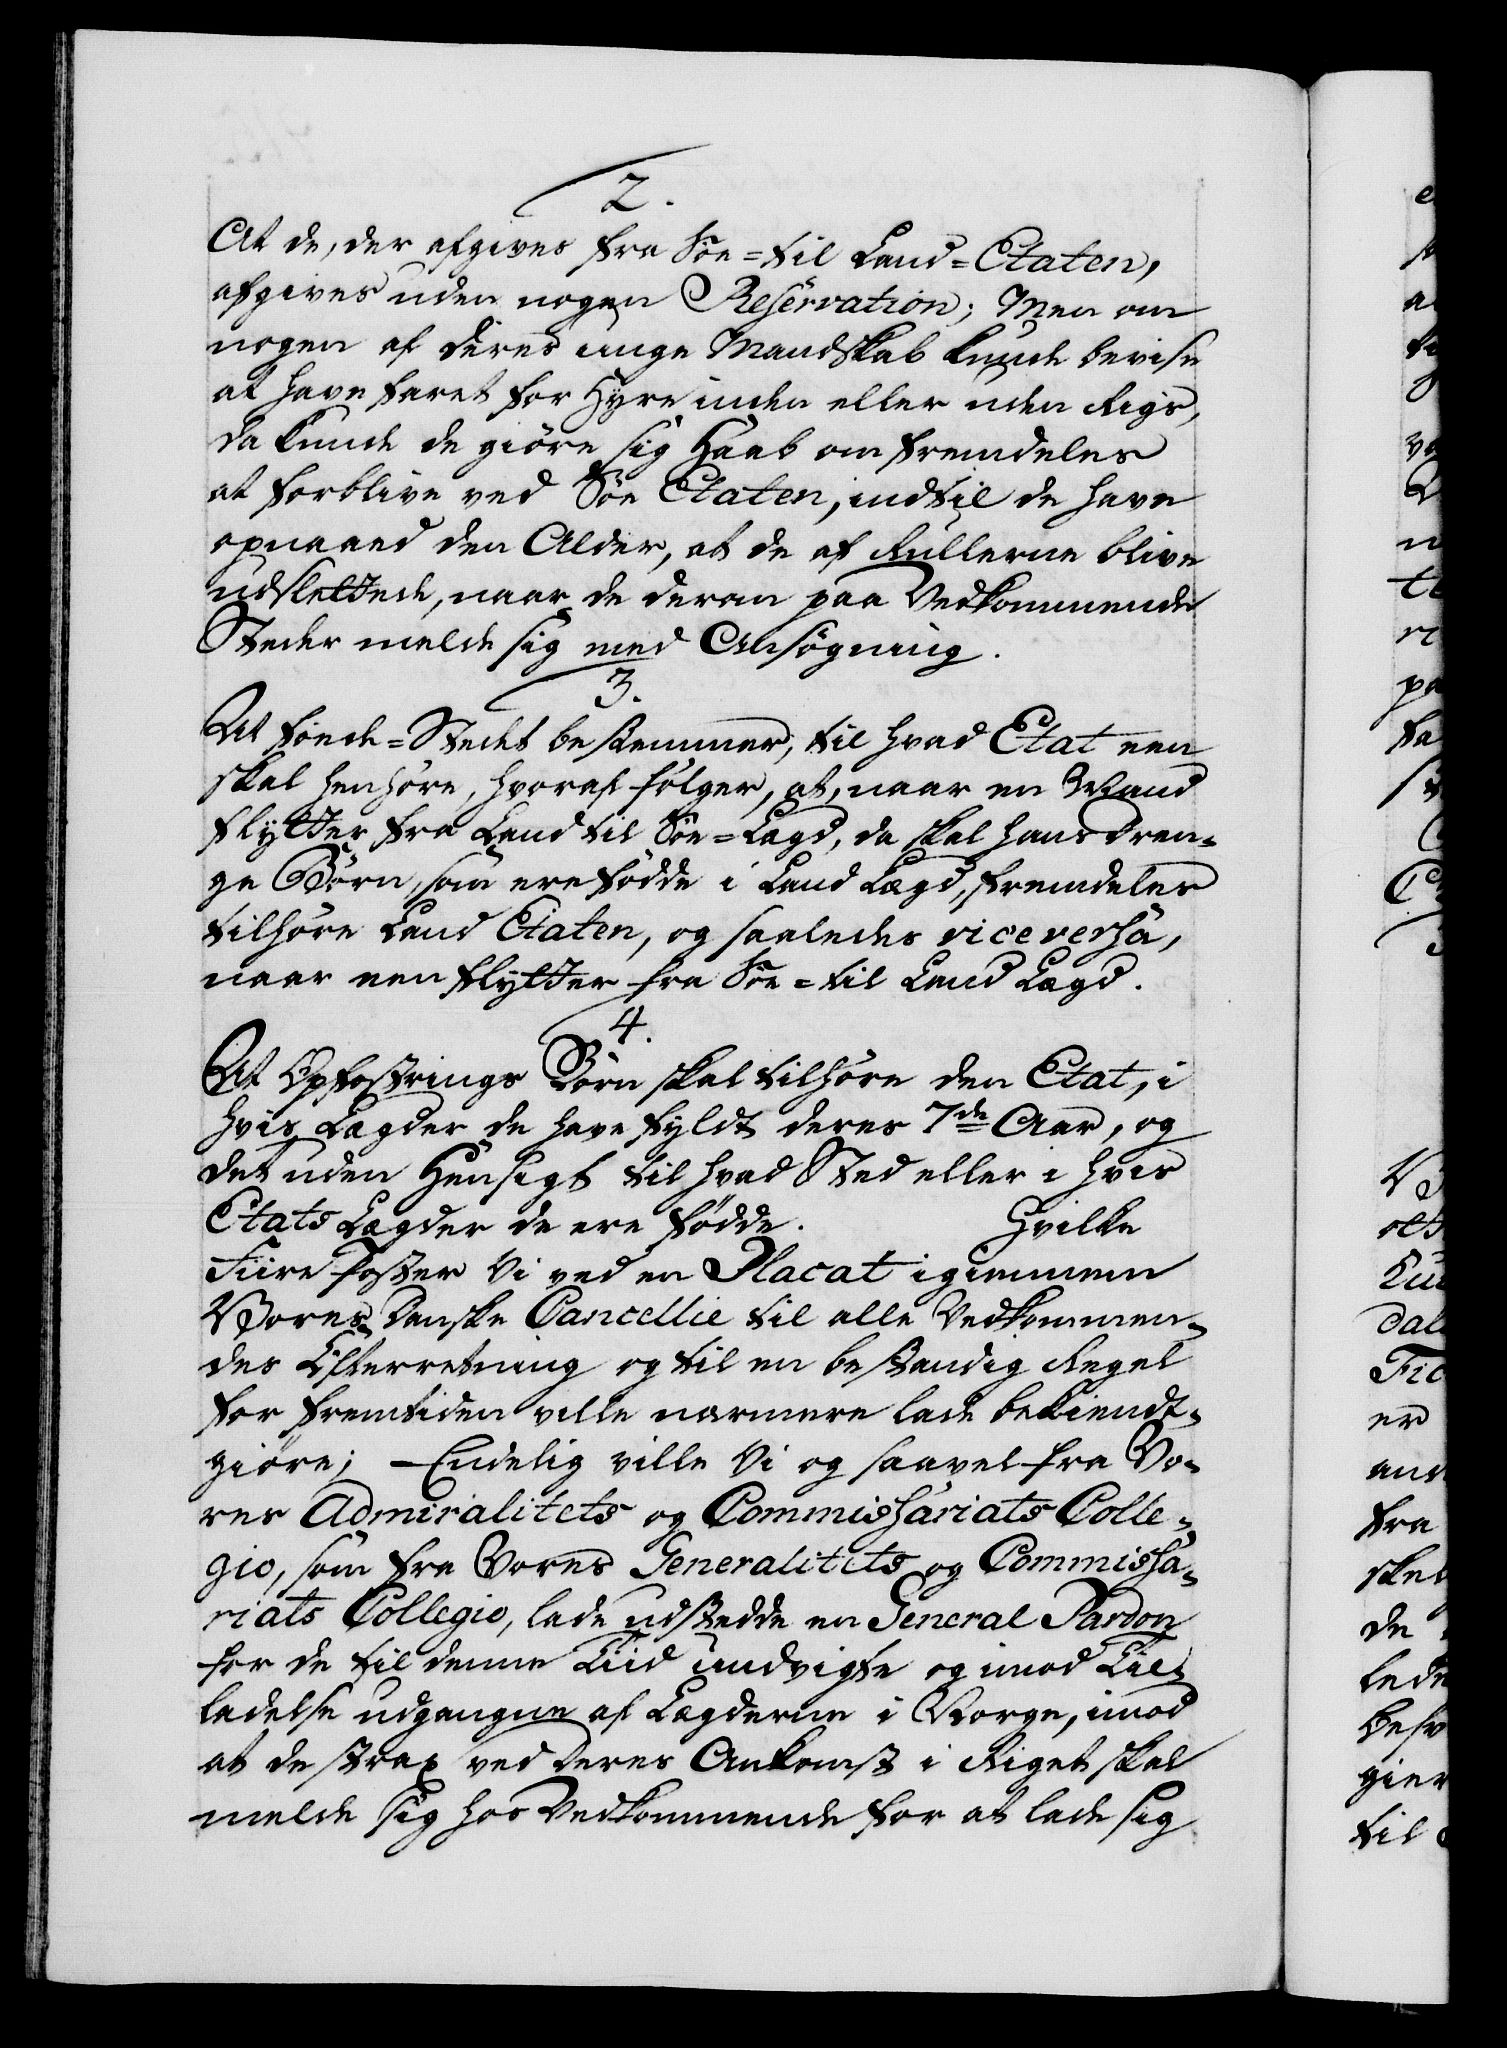 2.
At de, der afgives fra Søe=til Land=Etaten,
afgives uden nogen Reservation; Men om
nogen af deres unge Mandskab kunde bevise
at have faret for Hyre inden eller uden Rigs,
da kunde de giöre sig Haab om fremdeles
at forblive ved Søe Etaten, indtil de have
opnaaed den Alder, at de af Rullerne blive
udslettede, naar de derom paa Vedkommende
Steder melde sig med Ansögning.
3.
At Föede=Stedet bestemmer, til hvad Etat een
skal henhöre, hvoraf fölger, at, naar en Mand
flytter fra Land til Söe=Lægd, da skal hans Dren-
ge Börn, som ere födde i Land Lægd, fremdeles
tilhöre Land Etaten, og saaledes vice versa,
naar een flytter fra Söe=til Land Lægd.
4.
At Opfostrings Börn skal tilhöre den Etat, i
hvis Lægder de have fyldt deres 7de Aar, og
det uden Hensigt til hvad Sted eller i hvis
Etats Lægder de ere födde. Hvilke
Fiire Poster Vi ved en Placat igiennem
Vores Danske Cancellie til alle Vedkommen-
des Efterretning og til en bestandig Regel
for Fremtiden ville nærmere lade bekiendt-
giöre; – Endelig ville Vi og saavel fra Vo-
res Admiralitets og Commissariats Colle-
gio, som fra Vores Generalitets og Commissa-
riats Collegio, lade udstedde en General Pardon
for de til denne Tiid undvigte og imod Til-
ladelse udgangne af Lægderne i Norge, imod
at de strax ved deres Ankomst i Riget skal
melde sig hos Vedkommende for at lade sig